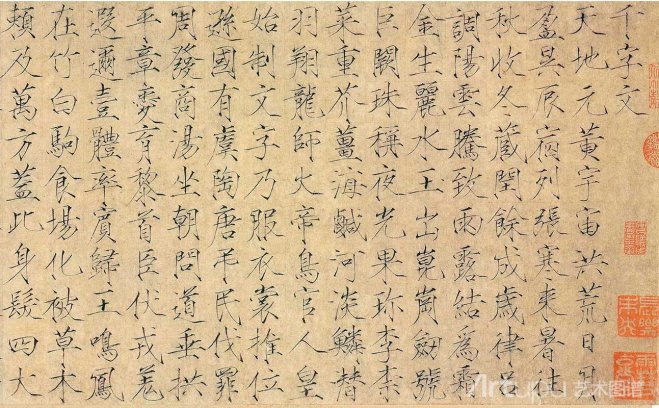 千字文
天地元黃宇宙洪荒日月
盈昃辰宿列張寒來暑往
秋收冬藏閏餘成歲律呂
調陽雲騰致雨露結為霜
金生麗水玉出崑崗劒號
巨闕珠稱夜光果珍李柰
菜重芥薑海鹹河淡鱗潛
羽翔龍師火帝鳥官人皇
始制文字乃服衣裳推位
遜國有虞陶唐弔民伐罪
周發商湯坐朝問道垂拱
平章愛育黎首臣伏戎羌
遐邇壹體率賓歸王鳴鳳
在竹白駒食場化被草木
賴及萬方蓋此身髮四大
Artupu 艺术图谱